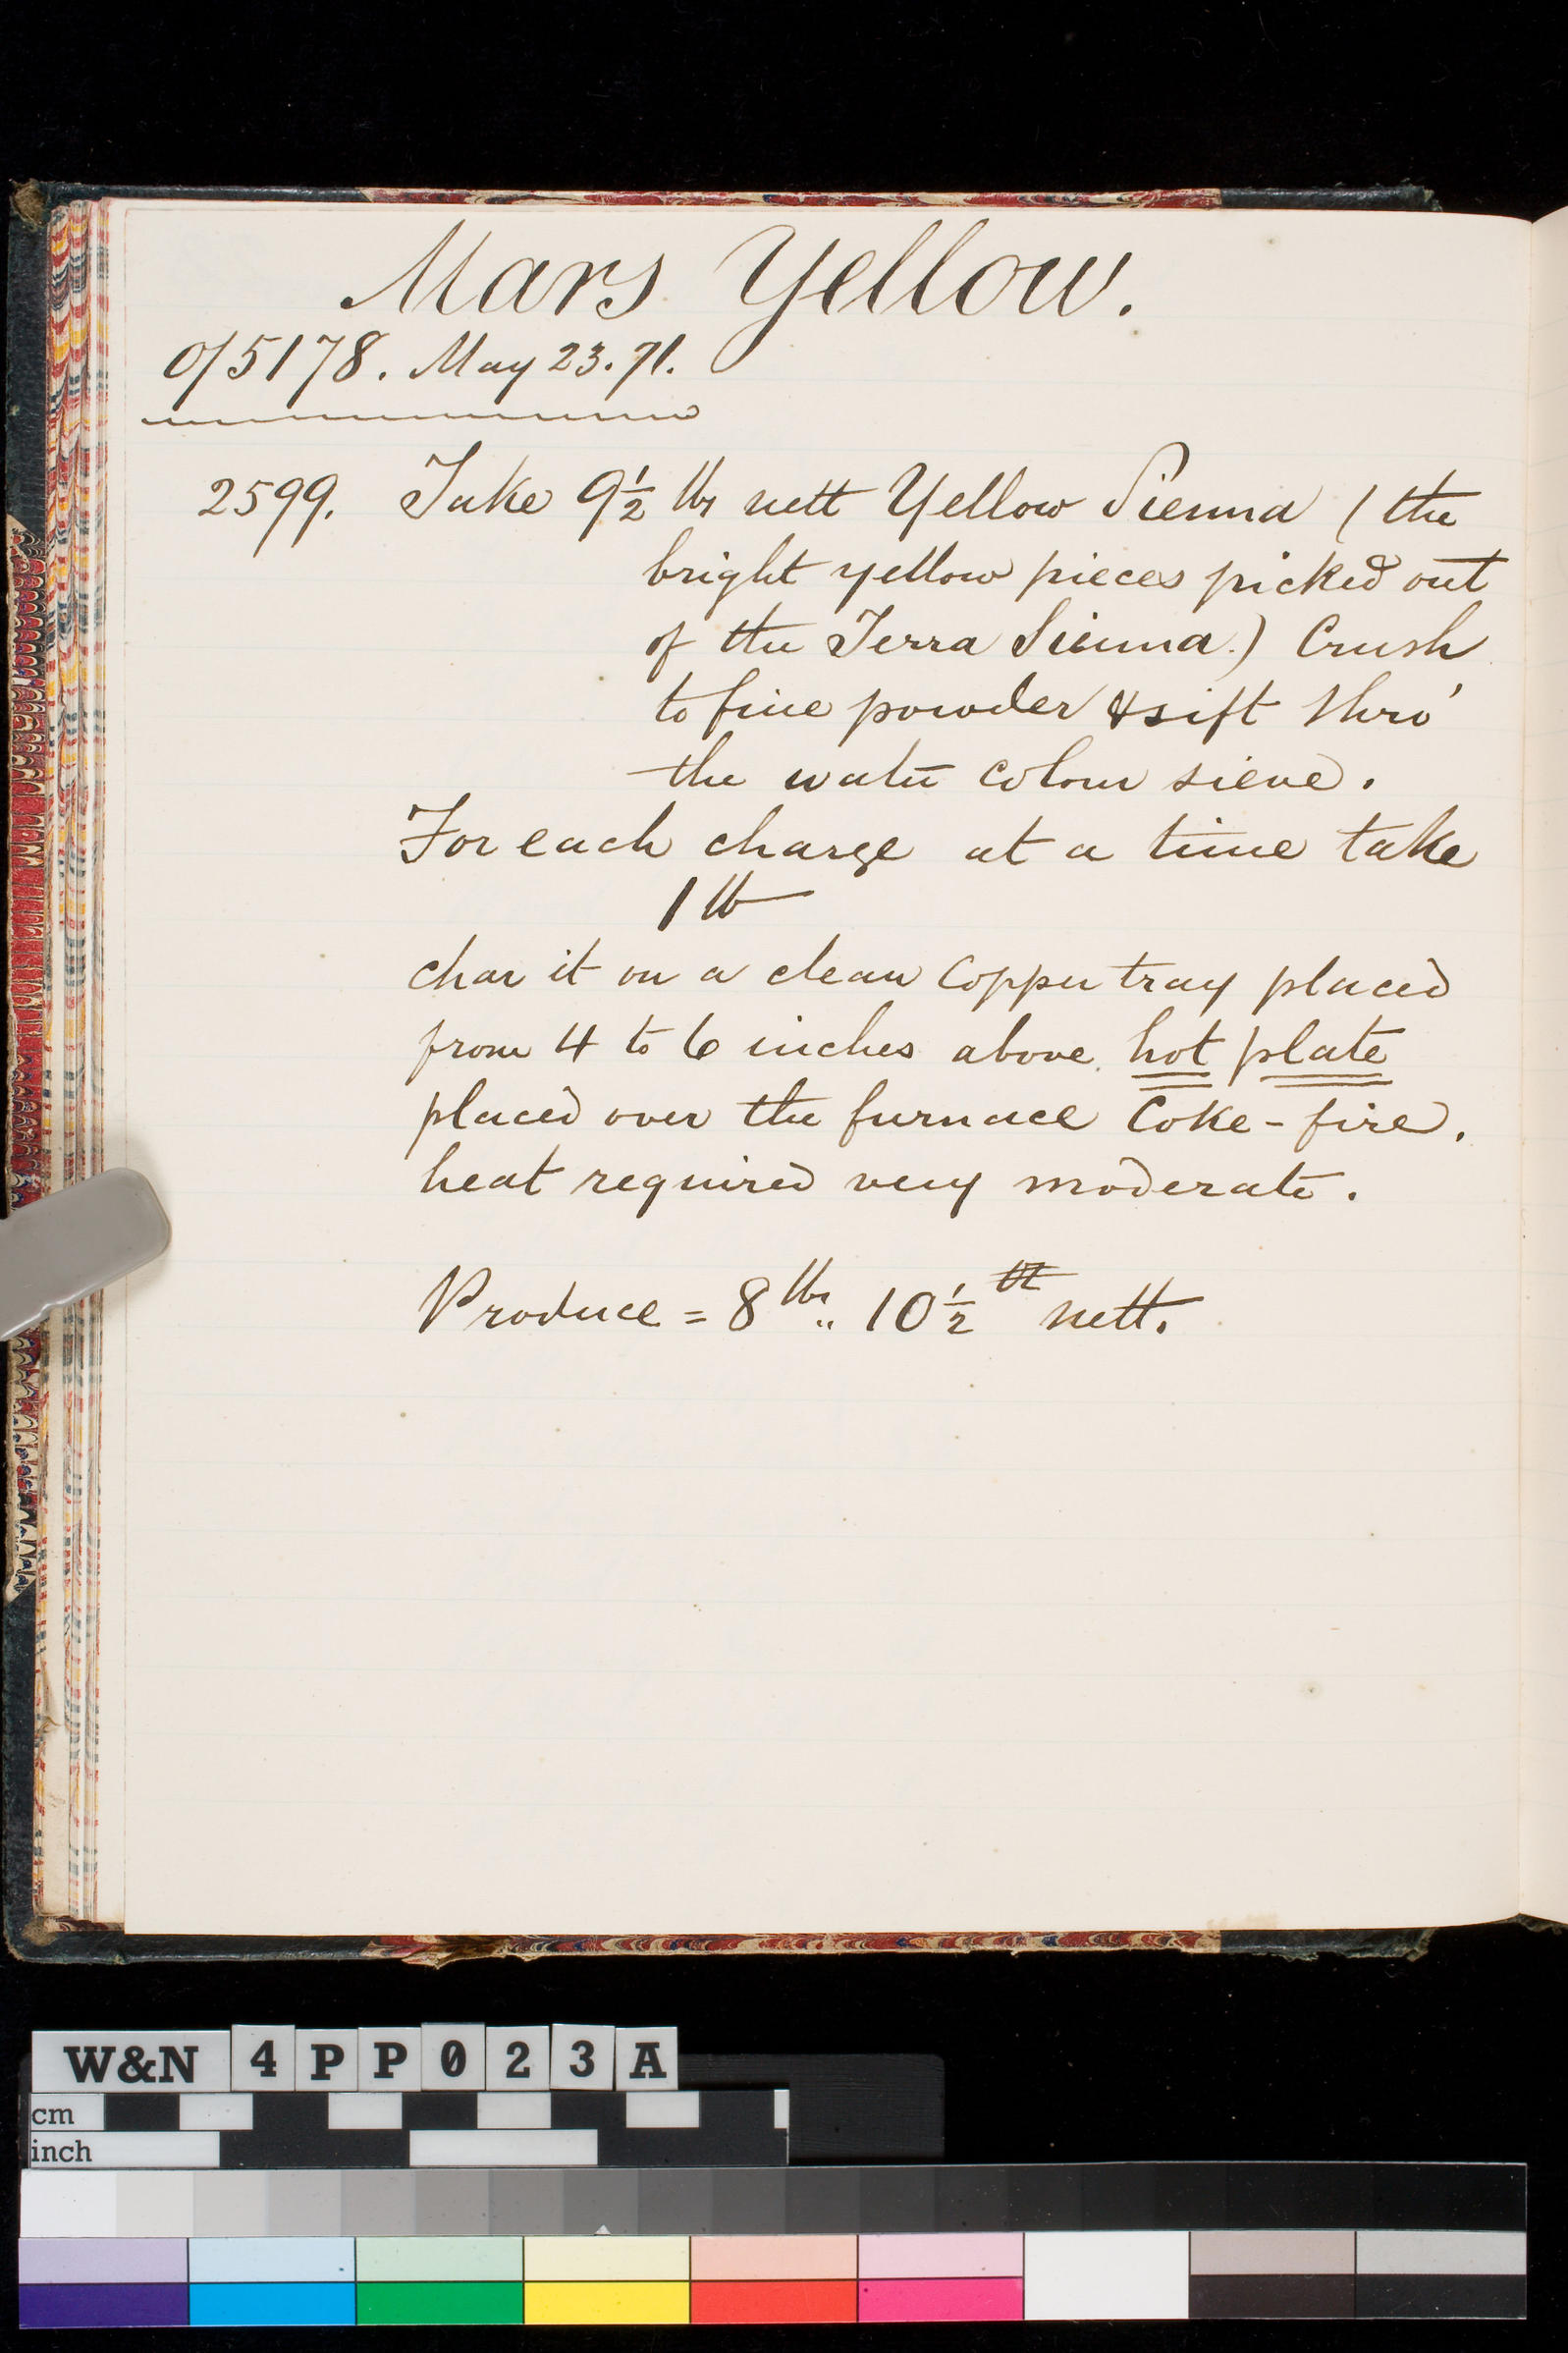 Mars Yellow.
O/5178. May 23. 71.
2599. Take 9½ lbs nett Yellow Sienna ( the
bright yellow pieces picked out
of the Terra Sienna.) Crush
to fine powder & sift thro'
the water colour sieve.
For each charge at a time take
1 lb
char it on a clean Copper tray placed
from 4 to 6 inches above hot plate
placed over the furnace Coke-fire.
heat required very moderate.
Produce = 8 lbs .. 10½ nett.
W&N 4PP023A
cm
inch